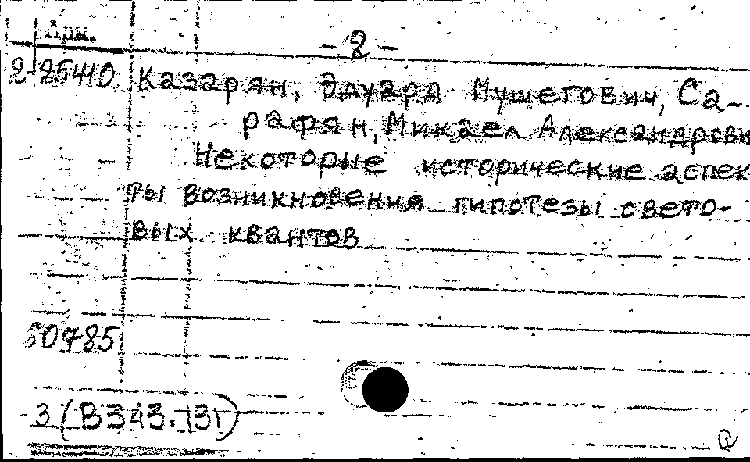 Арм.
- 2 -
2-25410 Казарян, Эдуард Мушегович, Са-
рафян, Микаел Александрови
Некоторые исторические аспек
ты возникновения гипотезы свето-
вых квантов
50785
3 (В343.131)